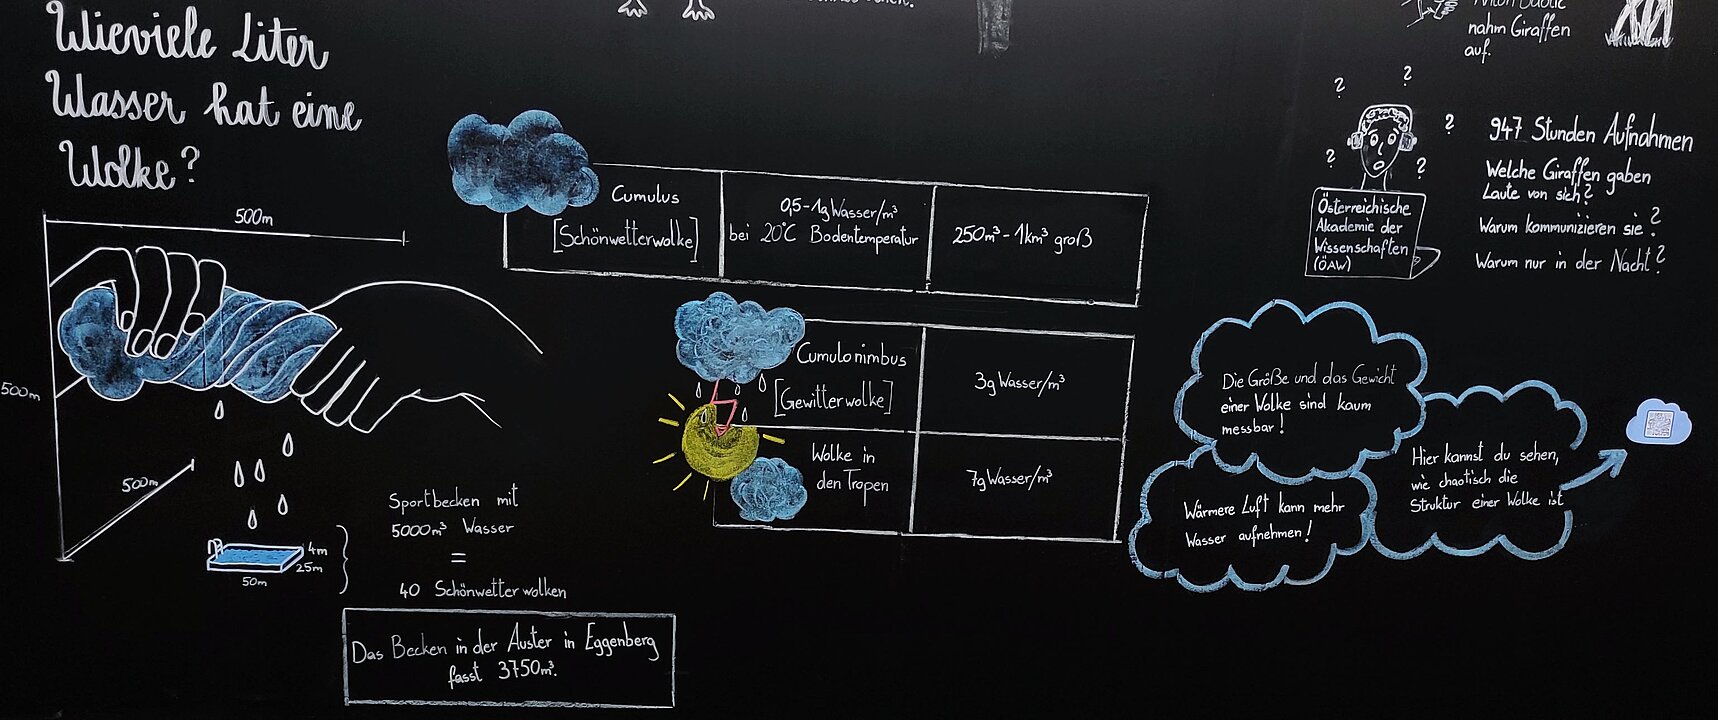 Wieviele Liter
Wasser hat eine
Wolke?
500m
500m
500m
4m
25m
50m
Sportbecken mit
5000m³ Wasser
=
40 Schönwetterwolken
Das Becken in der Auster in Eggenberg
fasst 3750m³.
Cumulus
[Schönwetterwolke]
0,5-1g Wasser/m³
bei 20°C Bodentemperatur
250m³-1km³ groß
Cumulonimbus
[Gewitterwolke]
3g Wasser/m³
Wolke in
den Tropen
7g Wasser/m³
nahm Giraffen
auf.
? ? ? ? ?
947 Stunden Aufnahmen
Welche Giraffen gaben
Laute von sich?
Warum kommunizieren sie?
Warum nur in der Nacht?
Österreichische
Akademie der
Wissenschaften
(ÖAW)
Die Größe und das Gewicht
einer Wolke sind kaum
messbar!
Wärmere Luft kann mehr
Wasser aufnehmen!
Hier kannst du sehen,
wie chaotisch die
Struktur einer Wolke ist